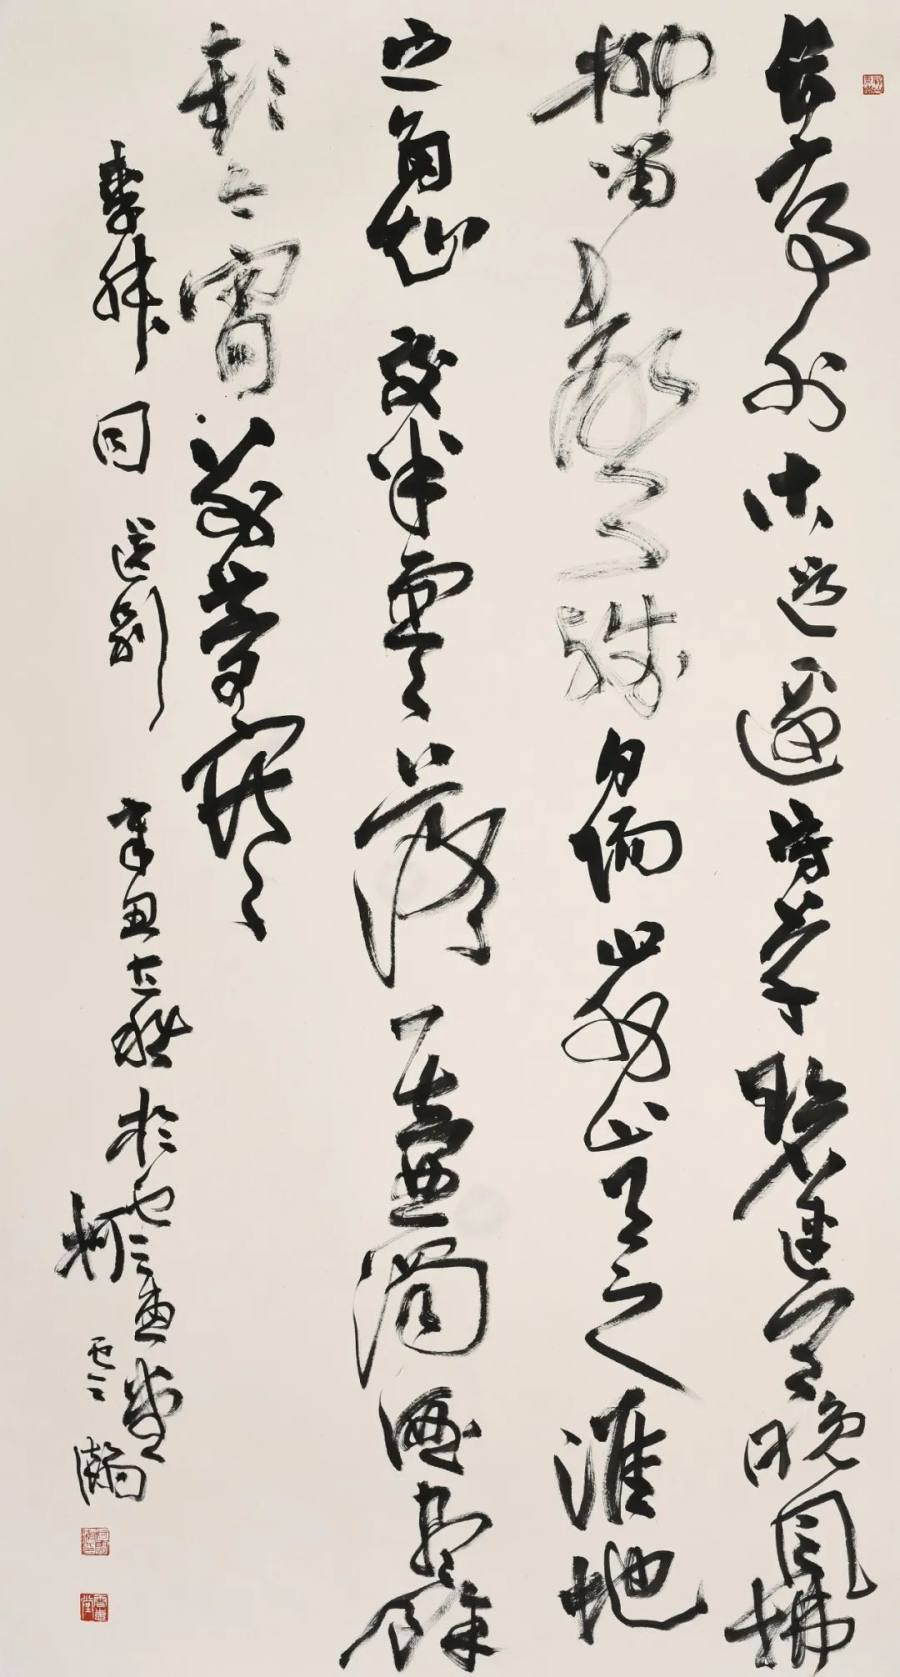 長亭外古道邊芳草碧連天晚風拂
柳笛聲殘夕陽山外山天之涯地
之角知交半零落一壺濁酒盡餘
歡今宵別夢寒
李叔同送別辛丑於雲堂
柯雲瀚